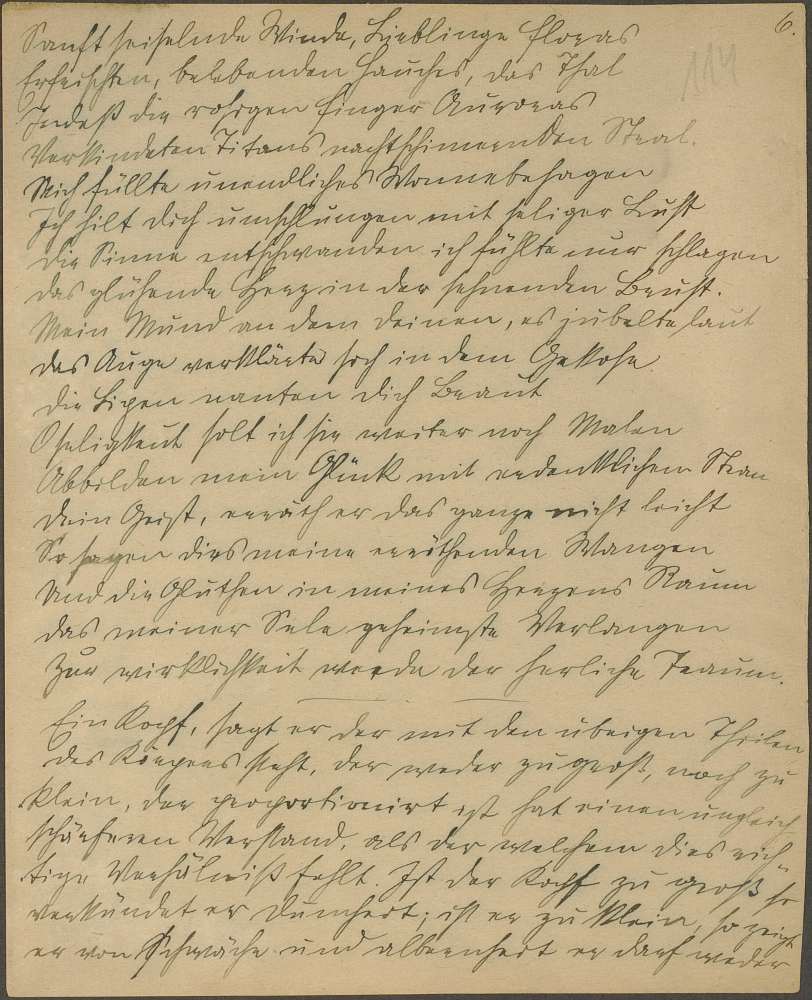 6.
114
Sanft seiselnde Winde, Lieblinge Floras
Erfrischten, belebenden Hauches, das Thal
Indeß die rosigen Finger Auroras
Verkindeten Titans nachtschimernden Stral.
Mich füllte unendliches Wonnebehagen
Ich hilt dich umschlungen mit seliger Lust
die Sinne entschwanden ich fühlte nur schlagen
das glühende Herz in der sehnenden Brust.
Mein Mund an dem deinen, es jubelte laut
das Auge verklärte sich in dem Gekose
die Lipen nanten dich Braut
O seligkeit solt ich sie weiter noch Malen
Abbilden mein Glück mit
dein Geist, erräth er das ganze nicht leicht
So sagen dies meine erröthenden Wangen
Und die Gluthen in meines Herzens Raum
das meiner Sele geheimste Verlangen
Zur wirklichkeit werde der herliche Traum.
Ein Kopf, sagt er der mit den übrigen Theilen
des Körpers steht, der weder zu groß, noch zu
klein, der proportionirt ist hat einen ungleich
schärferen Verstand, als der welchem dies rich-
tige Verhälniß fehlt. Ist der Kopf zu groß so
verkündet er Dumheit; ist er zu klein, so zeigt
er von Schwäche und albernheit er darf weder